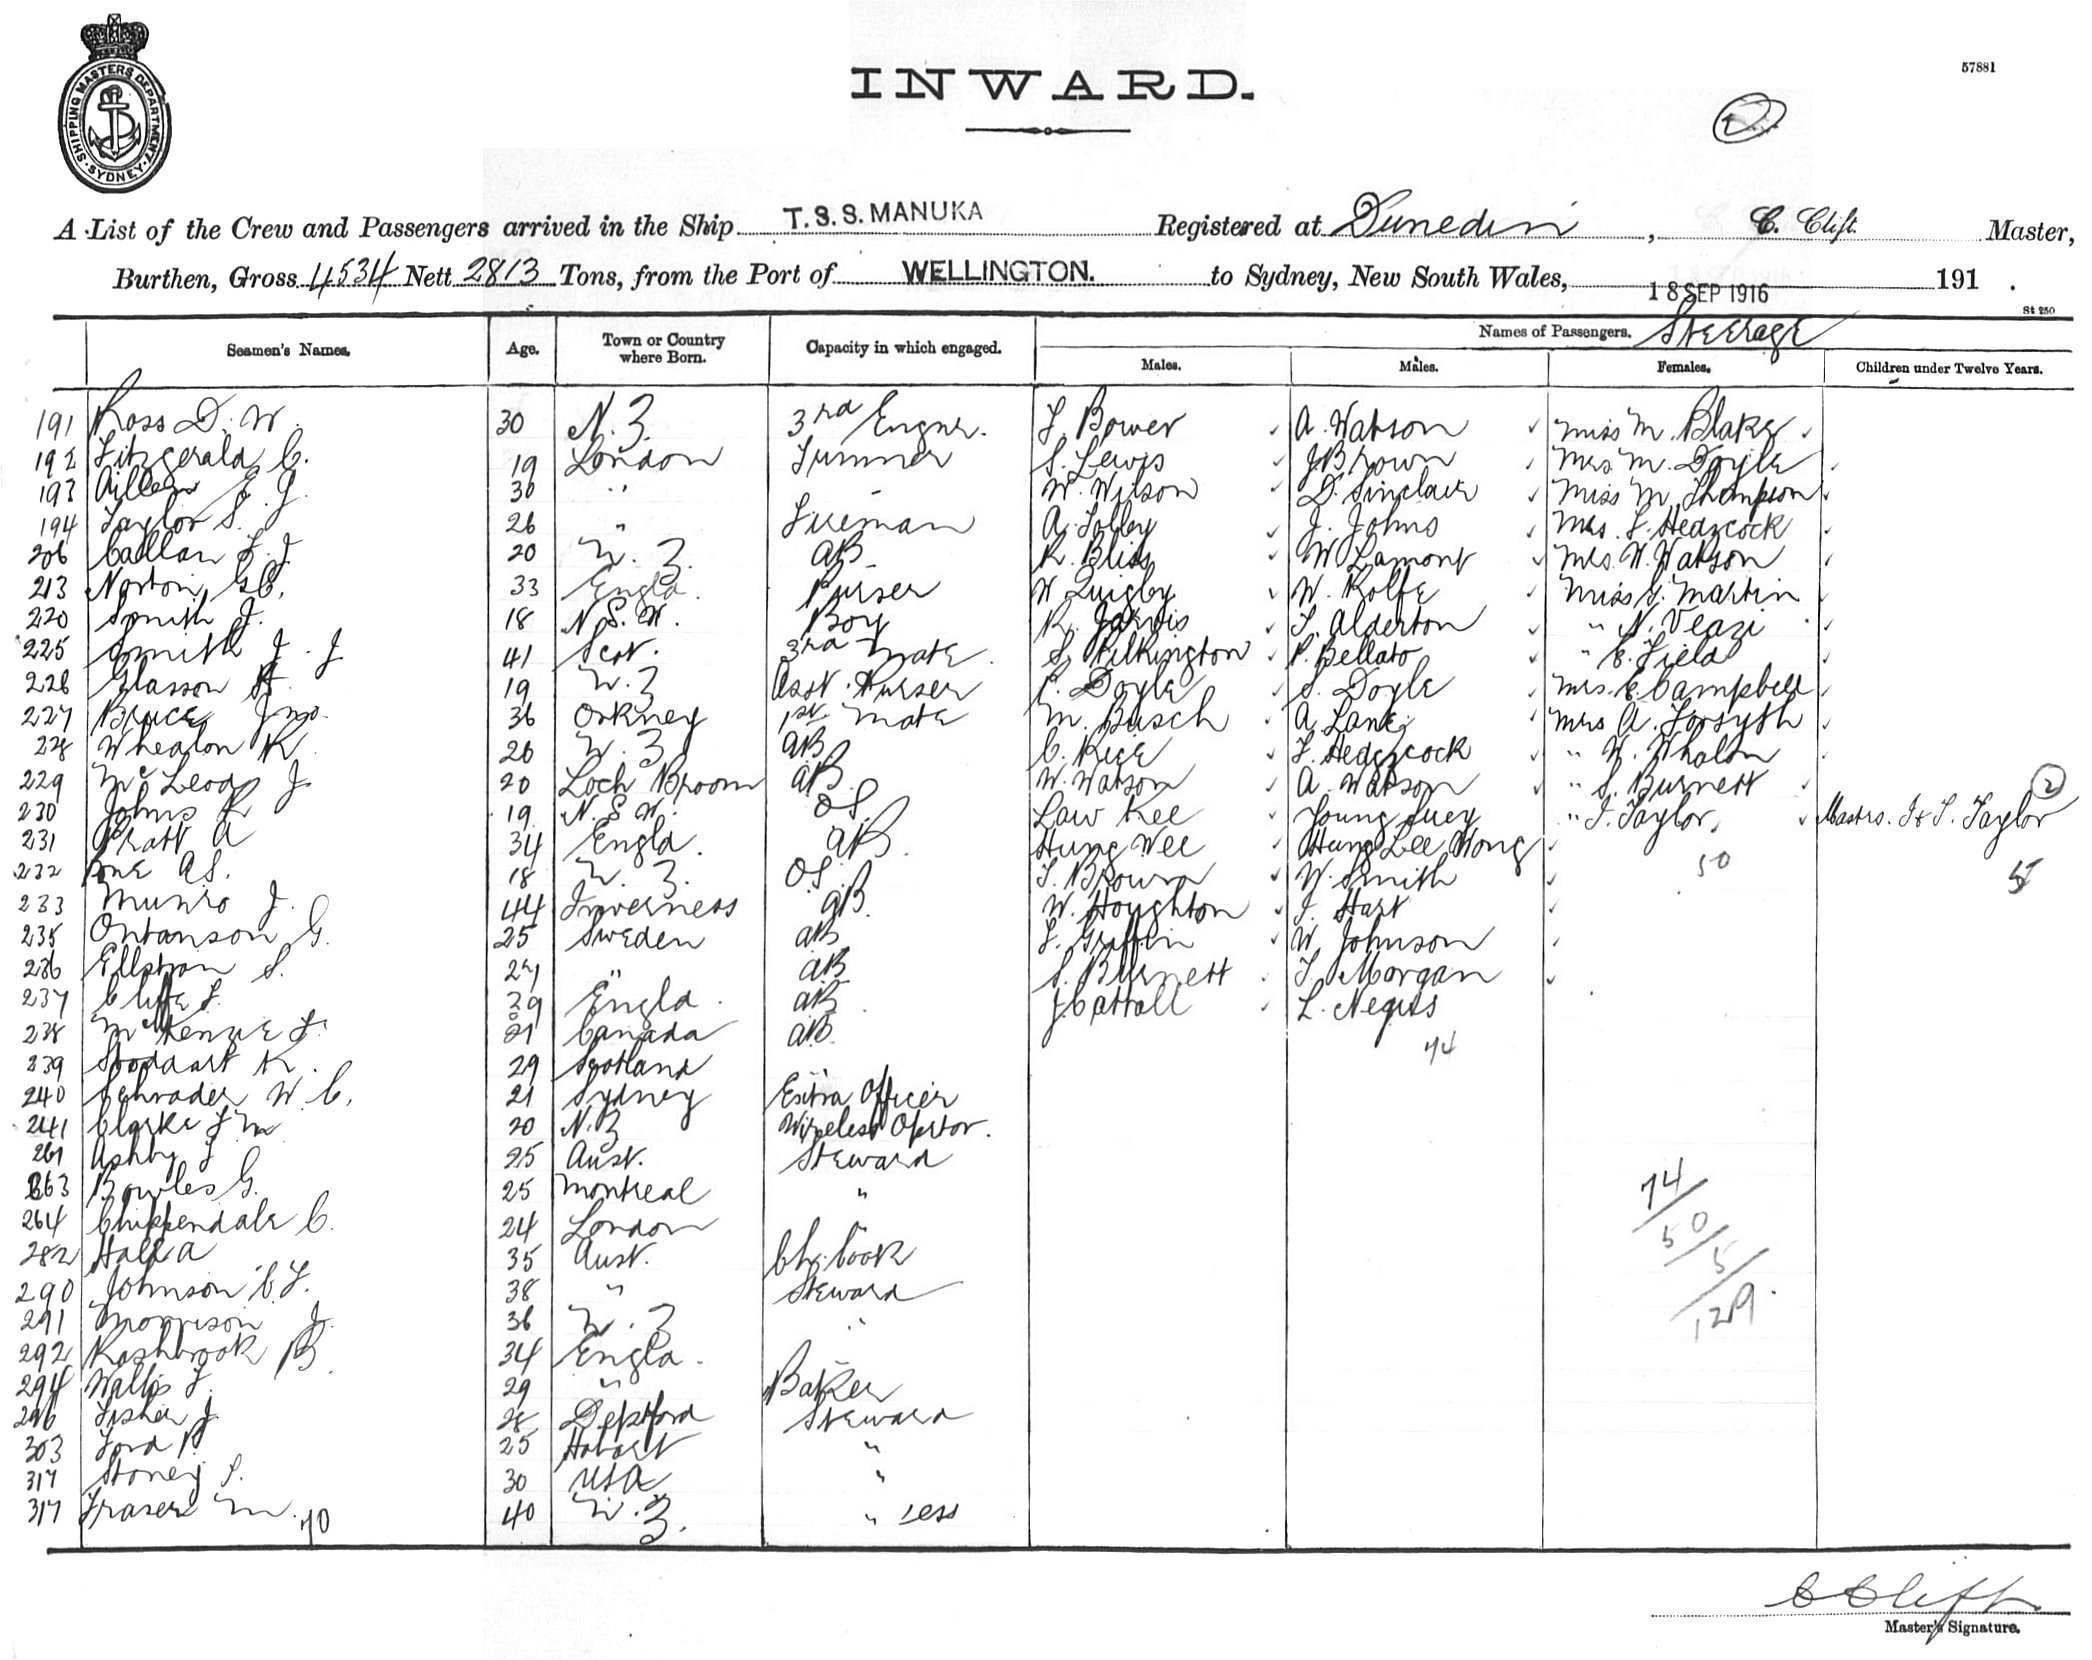 SHIPPING MASTERS DEPARTMENT · SYDNEY ·
INWARD.
57881
2
A List of the Crew and Passengers arrived in the Ship T.S.S. MANUKA Registered at Dunedin, C. Clift Master,
Burthen, Gross 4534 Nett 2813 Tons, from the Port of WELLINGTON. to Sydney, New South Wales, 18 SEP 1916 191 .
St 250
Seamen's Names. Age. Town or Country where Born. Capacity in which engaged. Names of Passengers. Steerage
Males. Males. Females. Children under Twelve Years.
191 Ross D. W. 30 N.Z. 3rd Engnr. F Bower A. Watson Miss M. Blake
192 Fitzgerald C. 19 London Trimmer S. Lewis J Brown Mrs. M. Doyle
193 E J 30 " W. Wilson D. Sinclair Miss M. Thompson
194 Taylor S. 26 " Fireman A. Tolley J. Johns Mrs. Hedgcock
206 Callan F. J 20 N. Z. AB R. Bliss W Lamont Mrs. W. Watson
213 Norton G C. 33 Engld. Purser W Quigley W. Rolfe Miss S. Martin
220 Smith J. 18 N.S.W. Boy R. Jarvis T. Alderton " N. Veazi
225 Smith J. J 41 Scot. 3rd Mate S. Pilkington P. Bellato " E. Field
226 Glasson 19 N.Z Asst. Purser Doyle S. Doyle Mrs. E Campbell
227 Bruce Jno. 36 Orkney 1st Mate M. Busch A Lane Mrs A. Forsyth
228 Whealon R. 20 N. Z AB C. Rice F. Hedgcock " W. Whalon
229 McLeod J 20 Loch Broom AB. W. Watson A. Watson " S. Burnett
230 Johns R 19 N.S.W. OS. Law Kee Young Suey " J. Taylor. Masters. J & T. Taylor 2
231 Pratt A 34 Engld. AB. Hung Wee Hung Lee Wong
232 AS. 18 N. Z. OS. T. Brown W. Smith 50 5
233 Munro J. 44 Inverness AB. W. Houghton J. Hart
235 G. 25 Sweden AB F. Griffin W. Johnson
236 Ellstrom S. 27 " AB S. Burnett T. Morgan
237 Cliffe F. 39 Engld. AB J. Cattall L. Negus
238 McKenzie F. 21 Canada AB. 74
239 Stoddart R. 29 Scotland
240 Schrader W. C. 21 Sydney Extra Officer
241 Clarke F M 20 N.Z Wireless Optor.
261 Ashby J 25 Aust. Steward
263 Bowles G. 25 Montreal "
264 Chippendale C. 24 London "
282 Hall A 35 Aust. Ch. Cook
290 Johnson C F. 38 " Steward
291 Morrison J. 36 N. Z "
292 Rashbrook B. 34 Engld. "
294 Wallis F. 29 " Baker
296 Fisher J 28 Deptford Steward
303 Ford P. 25 Hobart "
317 Stoney S. 30 USA "
317 Fraser M. 40 N.Z. " ess
70
74
50
5
129.
C Clift
Master's Signature.